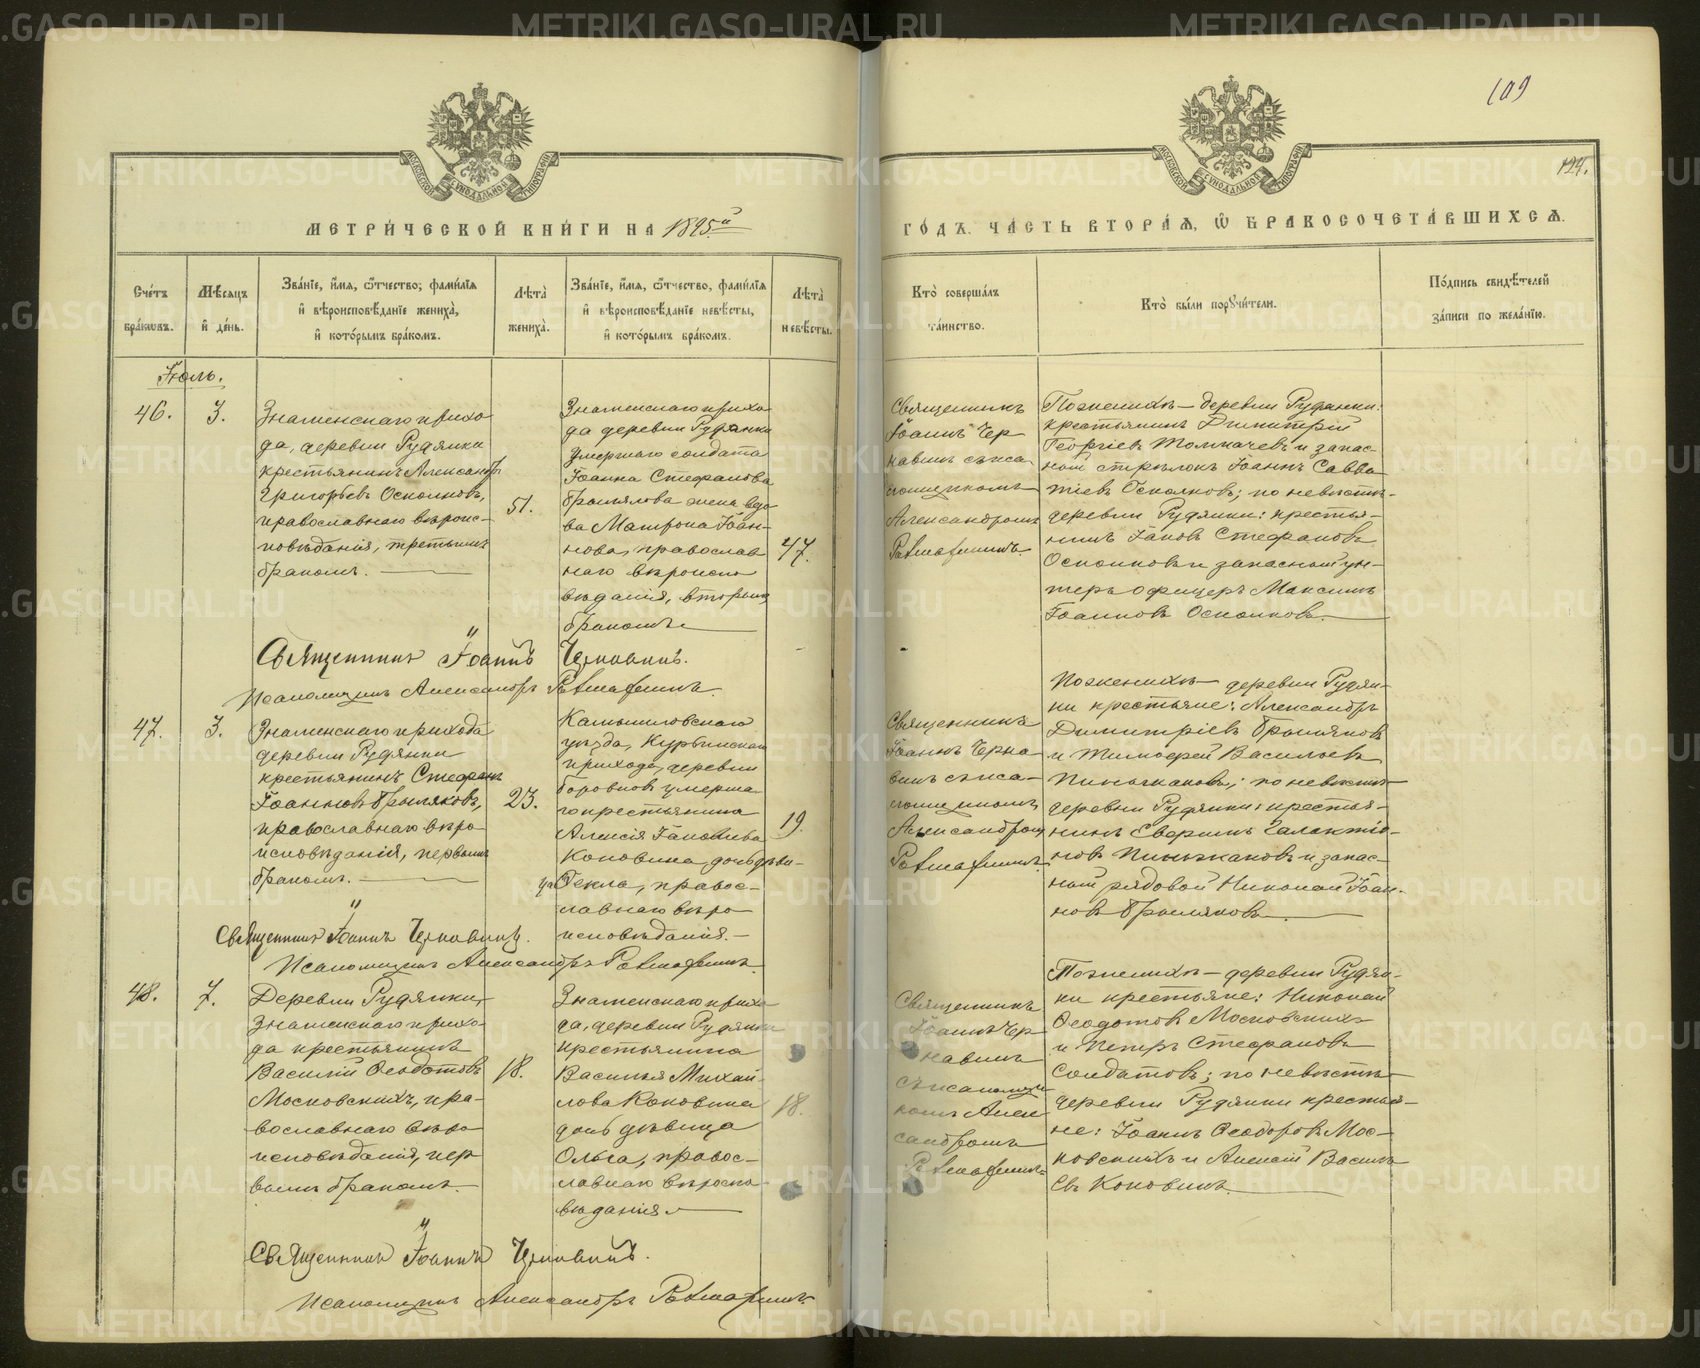 109
124.
МЕТРИ́ЧЕСКОЙ КНИ́ГИ НА 1895й
ГО́ДЪ. ЧА́СТЬ ВТОРА́Я, Ѡ҆ БРАКОСОЧЕТА́ВШИХСЯ.
МОСКОВСКОЙ СѴНОДАЛЬНОЙ ТИПОГРАФІИ
МОСКОВСКОЙ СѴНОДАЛЬНОЙ ТИПОГРАФІИ
Сче́тъ
бра́кѡвъ.
Мѣ́сяцъ
и҆ де́нь.
Зва́нїе, и҆́мя, ѻ҆́тчество, фами́лїя
и҆ вѣроисповѣ́данїе жениха̀,
и҆ кото́рымъ бра́комъ.
Лѣта̀
жениха̀.
Зва́нїе, и҆́мя, ѻ҆́тчество, фами́лїя
и҆ вѣроисповѣ́данїе невѣ́сты,
и҆ кото́рымъ бра́комъ.
Лѣта̀
невѣ́сты.
Кто̀ соверша́лъ
та́инство.
Кто̀ бы́ли порꙋчи́тели.
По́дпись свидѣ́телей
за́писи по жела́нїю.
Іюль.
46.
3.
Знаменскаго прихо
да, деревни Рудянки
крестьянинъ Александръ
Григорьевъ Осколковъ,
православнаго вѣроис-
повѣданія, третьимъ
бракомъ.
51.
Знаменскаго прихо
да деревни Рудянки
умершаго солдата
Іоанна Стефанова
Брылякова жена вдо
ва Матрона Іоан-
нова, православ
наго вѣроиспо
вѣданія, вторымъ
бракомъ
47.
Священникъ
Іоаннъ Чер
навинъ съ пса
ломщикомъ
Александромъ
Ратмафинымъ
По женихѣ — деревни Рудянки:
крестьянинъ Димитрій
Георгіевъ Толмачевъ и запас-
ной стрѣлокъ Іоаннъ Савва
тіевъ Осколковъ; по невѣстѣ-
деревни Рудянки: крестья-
нинъ Іаковъ Стефановъ
Осколковъ и запасной ун-
теръ офицеръ Максимъ
Іоанновъ Осколковъ.
Священникъ Іоаннъ Чернавинъ.
Псаломщикъ Александръ
47.
3.
Знаменскаго прихода
деревни Рудянки
крестьянинъ Стефанъ
Іоанновъ Брыляковъ,
православнаго вѣро-
исповѣданія, первымъ
бракомъ.
23.
Камышловскаго
уѣзда, Курьинскаго
прихода, деревни
Боровковъ умерша-
го крестьянина
Алексія Іаковлева
Коновина, дочь дѣви-
ца Ѳекла, правос-
лавнаго вѣро-
исповѣданія. —
19.
Священникъ
Іоаннъ Черна
винъ съ пса-
ломщикомъ
Александромъ
По женихѣ — деревни Рудян-
ки крестьяне: Александръ
Димитріевъ Брыляковъ
и Тимоѳей Васильевъ
Пинжаковъ; по невѣстѣ-
деревни Рудянки: крестья-
нинъ Северинъ Галактіо-
новъ Пинжаковъ и запас-
ной рядовой Николай Іоан-
новъ Брыляковъ
Священникъ Іоаннъ Чернавинъ.
Псаломщикъ Александръ
48.
7.
Деревни Рудянки,
Знаменскаго прихо-
да крестьянинъ
Василій Ѳеодотовъ
Московскихъ, пра-
вославнаго вѣро-
исповѣданія, пер
вымъ бракомъ.
18.
Знаменскаго прихо
да, деревни Рудянки
крестьянина
Василія Михай-
лова Коновина
дочь дѣвица
Ольга, правос-
лавнаго вѣроиспо-
вѣданія
18.
Священникъ
Іоаннъ Чер
навинъ
съ псаломщи
комъ Алек
сандромъ
По женихѣ — деревни Рудян-
ки крестьяне: Николай
Ѳеодотовъ Московскихъ
и Петръ Стефановъ
Солдатовъ; по невѣстѣ-
деревни Рудянки крестья-
не: Іоаннъ Ѳеодоровъ Мос-
ковскихъ и Алексій Василь
евъ Коновинъ.
Священникъ Іоаннъ Чернавинъ.
Псаломщикъ Александръ
METRIKI.GASO-URAL.RU